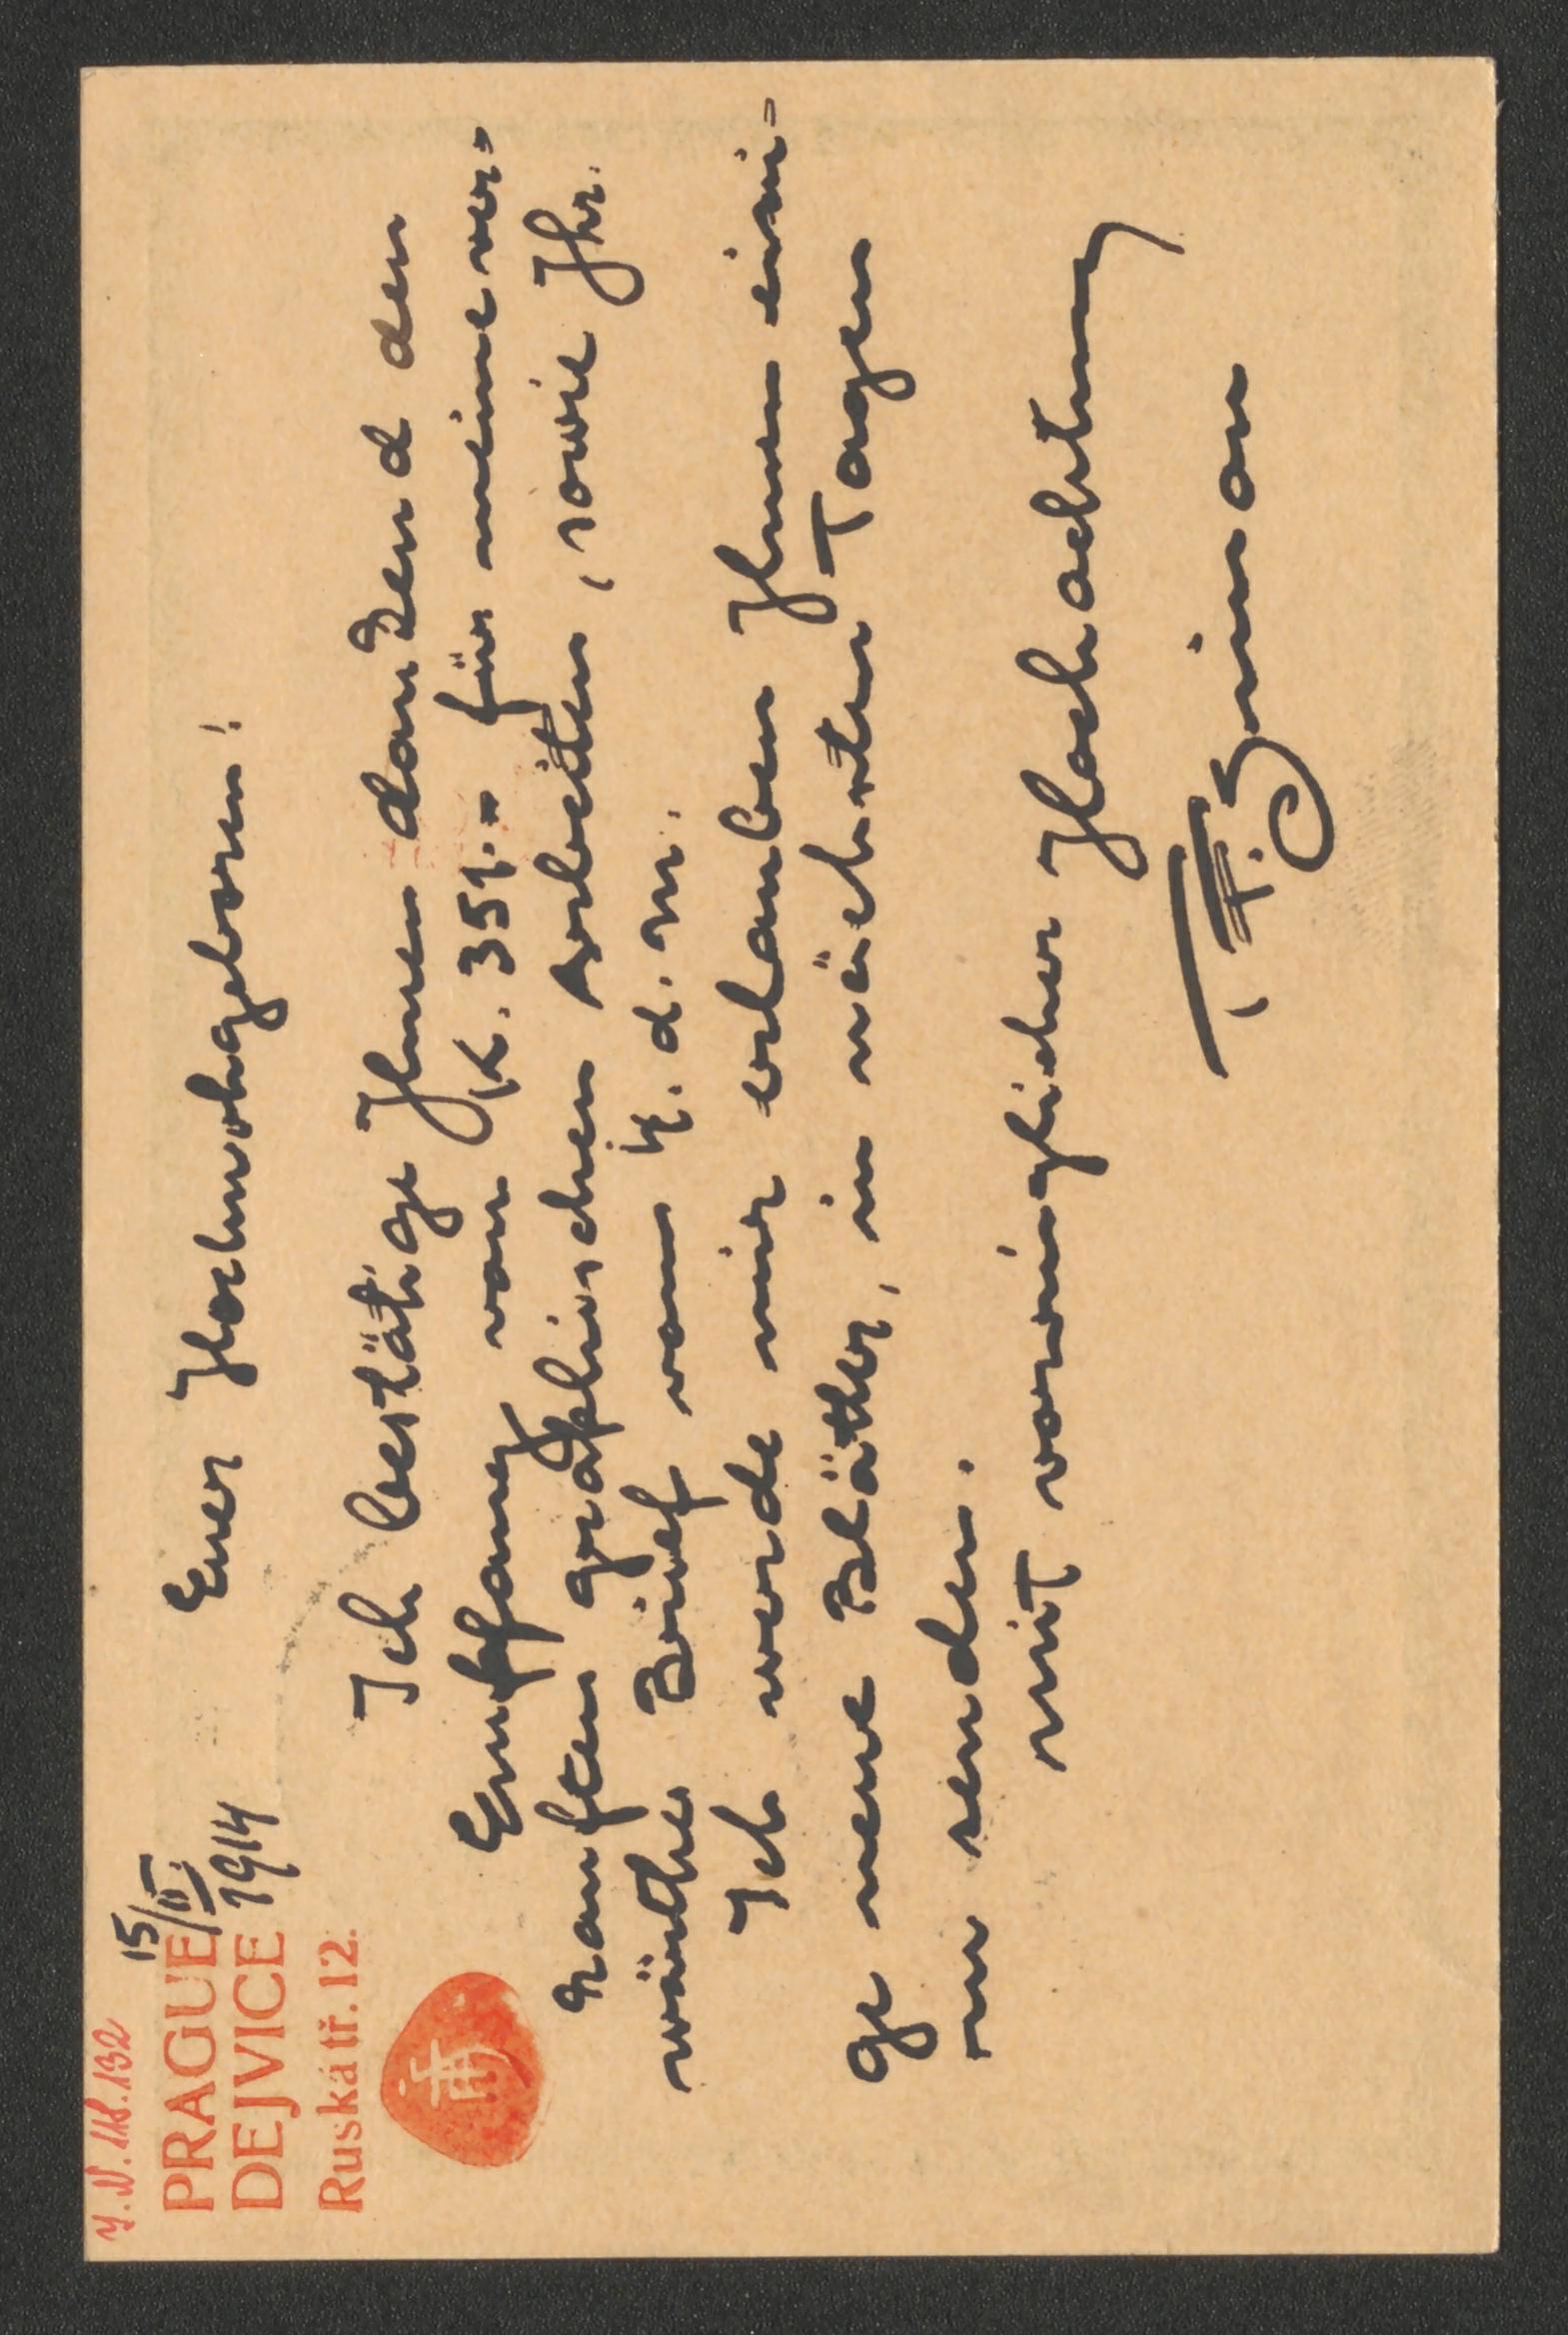 J.N. 118.132
PRAGUE
DEJVICE
Ruská tř. 12.
15/II.
1914
Euer Hochwohgeboren!
Ich bestätige Ihnen dankend den
Empfang von K. 351.= für meine ver=
kauften graphischen Arbeiten, sowie Ihr.
wärthes Brief vom 14. d. M.
Ich werde mir erlauben Ihnen eini=
ge neue Blätter, in nächsten Tagen
zu senden.
mit vorzüglicher Hochachtung
T. F. Šimon